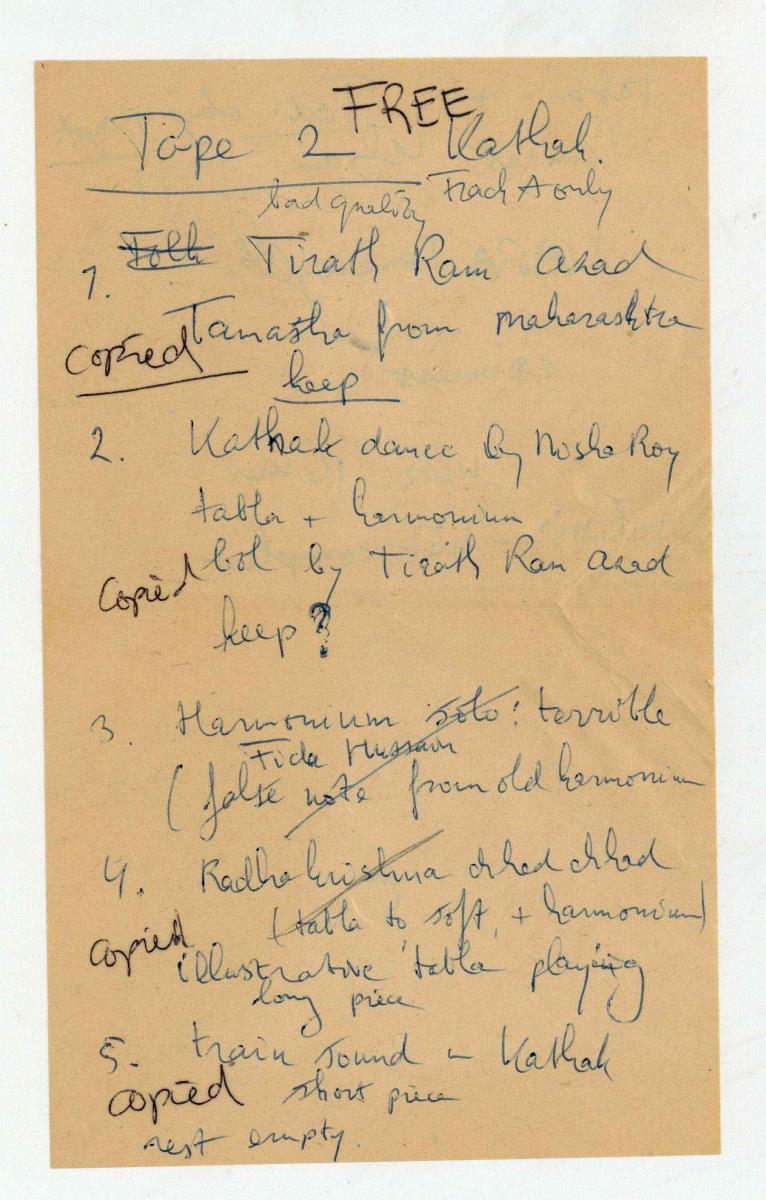 FREE
Tape 2 Kathak.
bad quality Track A only
1. Folk Tirath Ram Azad
Tamasha from Maharashtra
copied
keep
2. Kathak dance by Nisha Roy
tabla + harmonium
bol by Tirath Ram Azad
copied
keep?
3. Harmonium solo: terrible
Fida Hussain
(false note from old harmonium
4. Radha krishna chhed chhad
(tabla to soft, + harmonium)
copied
illustrative tabla playing
long piece
5. train sound in Kathak
copied short piece
rest empty.